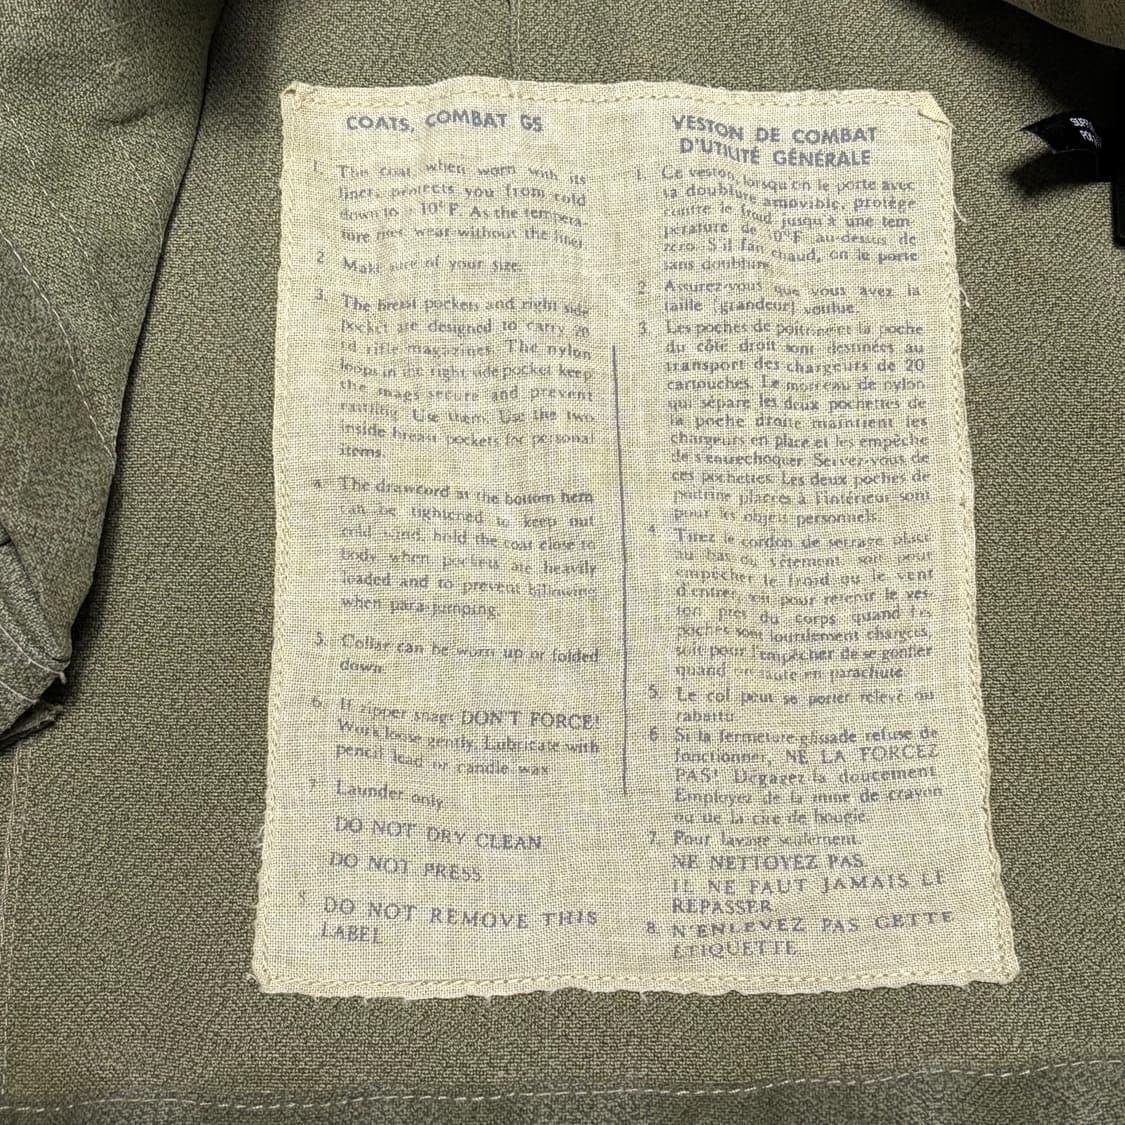 COATS, COMBAT GS
1. This coat when worn with its
liner, protects you from cold
down to 10°F. As the tempera-
ture rises wear without the liner
2 Make sure of your size.
3. The breast pockets and right side
pocket are designed to carry 20
rd rifle magazines. The nylon
loops in the right side pocket keep
the mags secure and prevent
rattling. Use them. Use the two
inside breast pockets for personal
items.
4. The drawcord at the bottom hem
can be tightened to keep out
cold wind, hold the coat close to
body when pockets are heavily
loaded and to prevent billowing
when para-jumping.
5. Collar can be worn up or folded
down.
6. If zipper snags DON'T FORCE!
Work loose gently. Lubricate with
pencil lead or candle wax
7 Launder only
DO NOT DRY CLEAN
DO NOT PRESS
8. DO NOT REMOVE THIS
LABEL
VESTON DE COMBAT
D'UTILITÉ GÉNÉRALE
1. Ce veston, lorsqu'on le porte avec
sa doublure amovible, protège
contre le froid jusqu'à une tem
pérature de 10°F au-dessus de
zero. S'il fait chaud, on le porte
sans doublure.
2. Assurez-vous que vous avez la
taille (grandeur) voulue.
3. Les poches de poitrine et la poche
du côté droit sont destinées au
transport des chargeurs de 20
cartouches. Le morceau de nylon
qui sépare les deux pochettes de
la poche droite maintient les
chargeurs en place et les empêche
de s'entrechoquer. Servez-vous de
ces pochettes. Les deux poches de
poitrine placées à l'intérieur sont
pour les objets personnels.
4. Tirez le cordon de serrage placé
au bas du vêtement soit pour
empêcher le froid ou le vent
d'entrer, soit pour retenir le ves-
ton près du corps quand les
poches sont lourdement chargées,
soit pour l'empêcher de se gonfler
quand on saute en parachute.
5. Le col peut se porter relevé ou
rabattu.
6 Si la fermeture glissade refuse de
fonctionner, NE LA FORCEZ
PAS! Dégagez la doucement.
Employez de la mine de crayon
ou de la cire de bougie.
7. Pour lavage seulement.
NE NETTOYEZ PAS
IL NE FAUT JAMAIS LE
REPASSER
8. N'ENLEVEZ PAS CETTE
ÉTIQUETTE